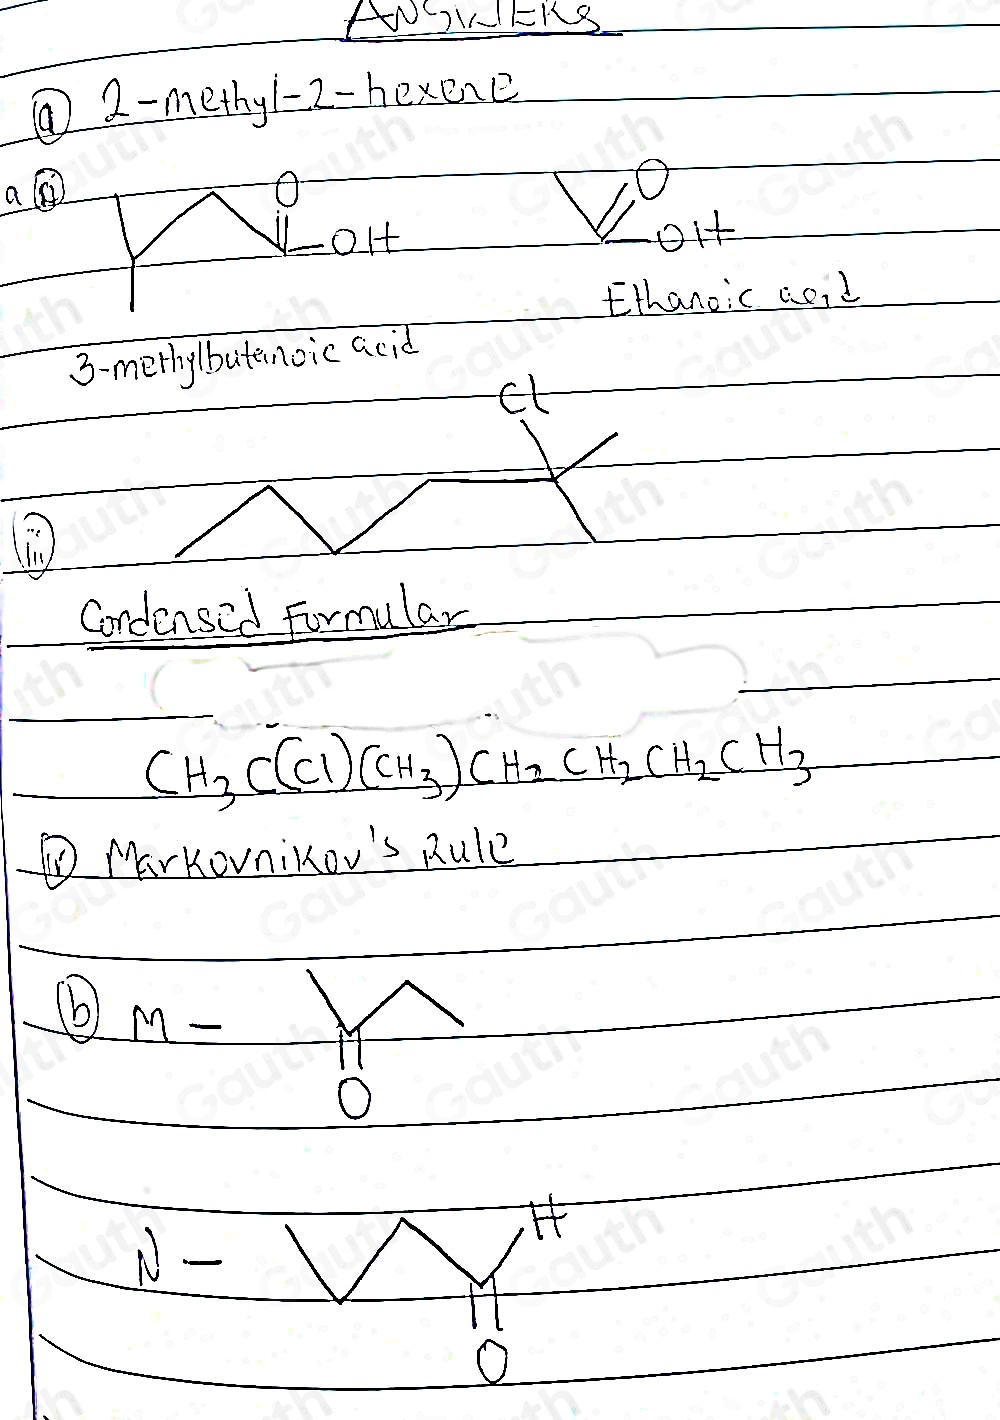 ANSWERS
(a) 2-methyl-2-hexene
a (ii)
O O
OH OH
Ethanoic acid
3-methylbutanoic acid
Cl
iii
Condensed Formular
CH3C(Cl)(CH3)CH2CH2CH2CH3
(iv) Markovnikov's Rule
(b) M -
O
N - H
O